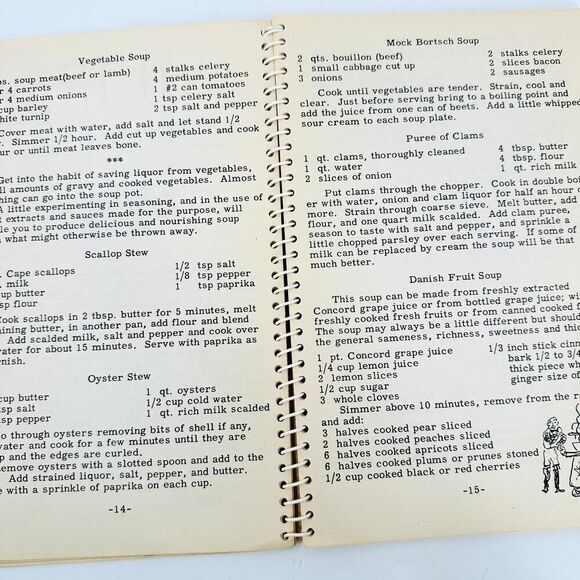 Vegetable Soup
bs. soup meat(beef or lamb) 4 stalks celery
r 4 carrots 4 medium potatoes
r 4 medium onions 1 #2 can tomatoes
cup barley 1 tsp celery salt
hite turnip 2 tsp salt and pepper
Cover meat with water, add salt and let stand 1/2
r. Simmer 1/2 hour. Add cut up vegetables and cook
our or until meat leaves bone.
***
Get into the habit of saving liquor from vegetables,
ll amounts of gravy and cooked vegetables. Almost
hing can go into the soup pot.
A little experimenting in seasoning, and in the use of
t extracts and sauces made for the purpose, will
le you to produce delicious and nourishing soup
what might otherwise be thrown away.
Scallop Stew
. Cape scallops 1/2 tsp salt
. milk 1/8 tsp pepper
up butter 1 tsp paprika
sp flour
Cook scallops in 2 tbsp. butter for 5 minutes, melt
ining butter, in another pan, add flour and blend
Add scalded milk, salt and pepper and cook over
water for about 15 minutes. Serve with paprika as
rnish.
Oyster Stew
cup butter 1 qt. oysters
tsp salt 1/2 cup cold water
tsp pepper 1 qt. rich milk scalded
o through oysters removing bits of shell if any,
water and cook for a few minutes until they are
p and the edges are curled.
emove oysters with a slotted spoon and add to the
Add strained liquor, salt, pepper, and butter.
e with a sprinkle of paprika on each cup.
-14-
Mock Bortsch Soup
2 qts. bouillon (beef) 2 stalks celery
1 small cabbage cut up 2 slices bacon
3 onions 2 sausages
Cook until vegetables are tender. Strain, cool and
clear. Just before serving bring to a boiling point and
add the juice from one can of beets. Add a little whipped
sour cream to each soup plate.
Puree of Clams
1 qt. clams, thoroughly cleaned 4 tbsp. butter
1 qt. water 4 tbsp. flour
2 slices of onion 1 qt. rich milk
Put clams through the chopper. Cook in double boil
er with water, onion and clam liquor for half an hour o
more. Strain through coarse sieve. Melt butter, add
flour, and one quart milk scalded. Add clam puree,
season to taste with salt and pepper, and sprinkle a
little chopped parsley over each serving. If some of
milk can be replaced by cream the soup will be that
much better.
Danish Fruit Soup
This soup can be made from freshly extracted
Concord grape juice or from bottled grape juice; wi
freshly cooked fresh fruits or from canned cooked f
The soup may always be a little different but should
the general sameness, richness, sweetness and thic
1 pt. Concord grape juice 1/3 inch stick cinn
1/4 cup lemon juice bark 1/2 to 3/4
2 lemon slices thick piece wh
1/2 cup sugar ginger size of
3 whole cloves
Simmer above 10 minutes, remove from the r
and add:
3 halves cooked pear sliced
2 halves cooked peaches sliced
6 halves cooked apricots sliced
6 halves cooked plums or prunes stoned
1/2 cup cooked black or red cherries
-15-